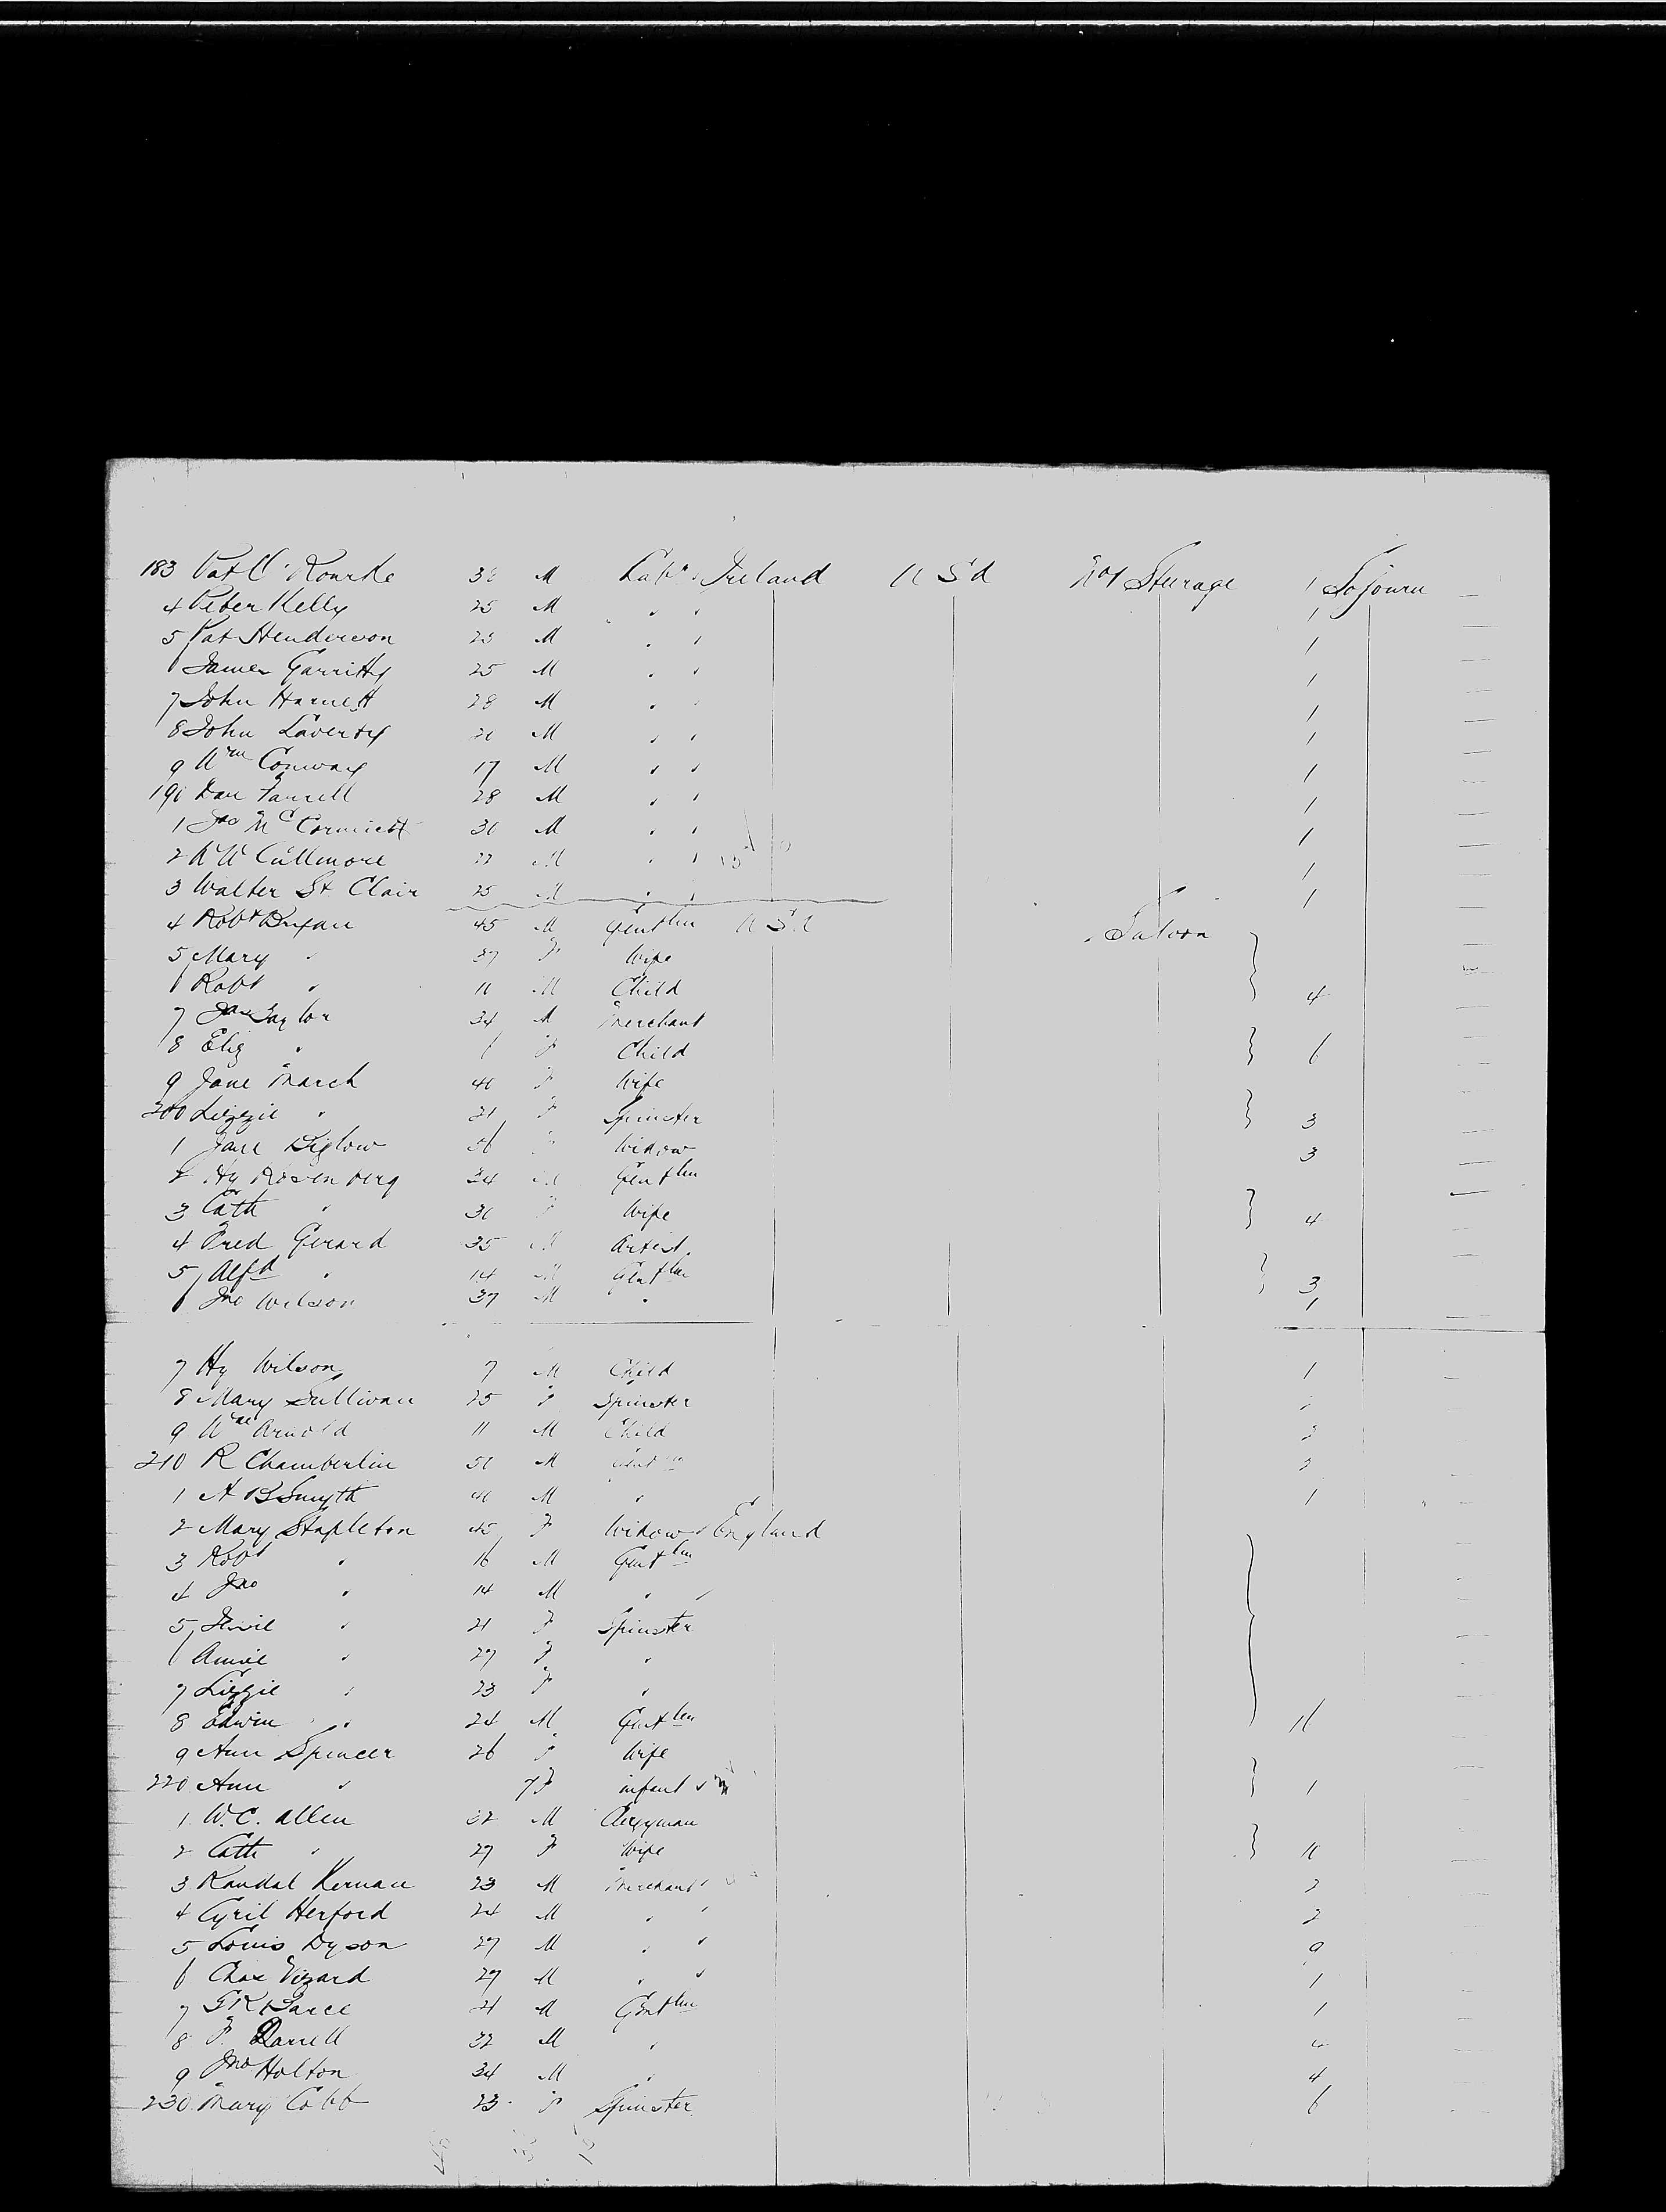 183 Pat O'Rourke 38 M Labr Ireland U S A No 1 Steerage 1 Sojourn
4 Peter Kelly 25 M " " 1
5 Pat Henderson 23 M " " 1
6 James Garritty 25 M " " 1
7 John Harnett 28 M " " 1
8 John Laverty 20 M " " 1
9 Wm Conway 17 M " " 1
190 Dan Farrell 28 M " " 1
1 Jno McCormick 30 M " " 1
2 W W Cullmore 22 M " " 1
3 Walter St Clair 25 M " " 1
4 Robt Bryan 45 M Gentln U S A Saloon
5 Mary " 37 F Wife
6 Robt " 10 M Child 4
7 Jas Taylor 34 M Merchant
8 Eliz " 6 F Child 6
9 Jane March 40 F Wife
200 Lizzie " 21 F Spinster 3
1 Jane Biglow 56 F Widow 3
2 Hy Rosenberg 34 M Gentln
3 Cath " 30 F Wife 4
4 Fred Gerard 35 M Artist
5 Alfd " 14 M Gentln 3
6 Jno Wilson 37 M " 1
7 Hy Wilson 7 M Child 1
8 Mary Sullivan 25 F Spinster
9 Wm Arnold 11 M Child 2
210 R Chamberlin 50 M Gentln 2
1 A B Smyth 40 M " 1
2 Mary Stapleton 45 F Widow England
3 Robt " 16 M Gentln
4 Jno " 14 M "
5 " 21 F Spinster
6 Annie " 27 F "
7 Lizzie " 23 F "
8 Edwin " 24 M Gentln 11
9 Ann Spencer 26 F Wife
220 Ann " 7 F infant 1
1 W.C. Allen 32 M Clergyman
2 Cath " 27 F Wife 10
3 Randal Kernan 23 M Merchant 2
4 Cyril Herford 24 M " " 2
5 Louis Dyson 27 M " " 9
6 Chas Vizard 29 M " " 1
7 21 M Gentln 1
8 F. Darrell 32 M "
9 Jno Holton 34 M " 4
230 Mary Cobb 23 F Spinster 6